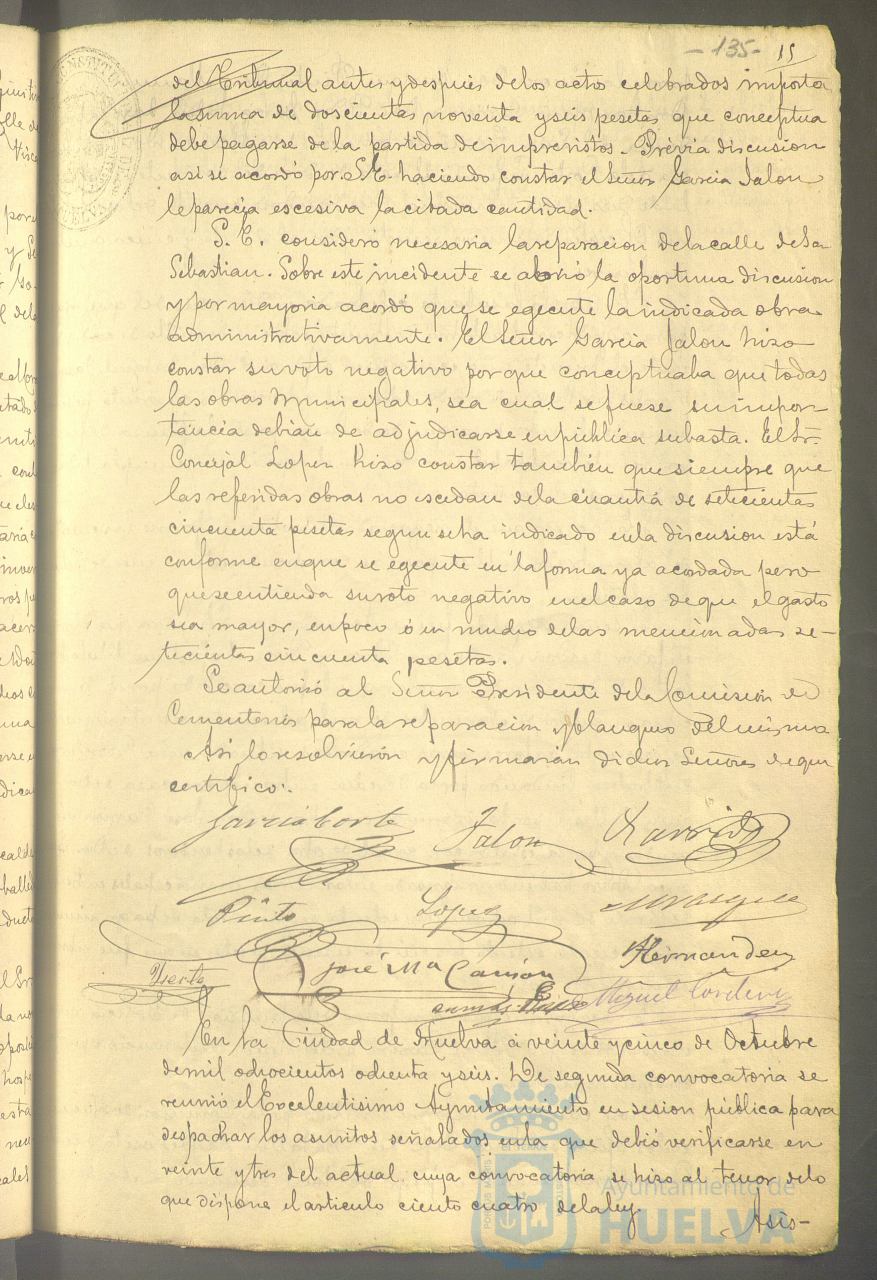 - 135 -
15
del Tribunal antes y despues de los actos celebrados importa
la suma de doscientas noventa y seis pesetas que conceptua
debe pagarse de la partida de imprevistos. Prévia discusion
asi se acordó por S.E. haciendo constar el Señor Garcia Jalon
le parecia escesiva la citada cantidad.
S. E. consideró necesaria la reparacion de la calle de Sn
Sebastian. Sobre este incidente se abrió la oportuna discusion
y por mayoria acordó que se egecute la indicada obra
administrativamente. El Señor Garcia Jalon hizo
constar su voto negativo por que conceptuaba que todas
las obras Municipales, sea cual se fuese su impor
tancia debian de adjudicarse en pública subasta. El Sr.
Concejal Lopez hizo constar tambien que siempre que
las referidas obras no escedan de la cuantia de setecientas
cincuenta pesetas segun se ha indicado en la discusion está
conforme en que se egecute en la forma ya acordada pero
que se entienda su voto negativo en el caso de que el gasto
sea mayor, en poco ó en mucho de las mencionadas se-
tecientas cincuenta pesetas.
Se autorizó al Señor Presidente de la Comision de
Cementerios para la reparacion y blanqueo del mismo
Asi lo resolvieron y firmarán dichos Señores de que
certifico:.
Garcia Corte Jalon Garrido
Pinto Lopez
José Ma Hernandez
Miguel Cordero
En la Ciudad de Huelva á veinte y cinco de Octubre
de mil ochocientos ochenta y seis. De segunda convocatoria se
reunió el Excelentisimo Ayuntamiento en sesion pública para
despachar los asuntos señalados en la que debió verificarse en
veinte y tres del actual cuya convocatoria se hizo al tenor de lo
que dispone el articulo ciento cuatro de la ley.
Asis-
Ayuntamiento de
HUELVA